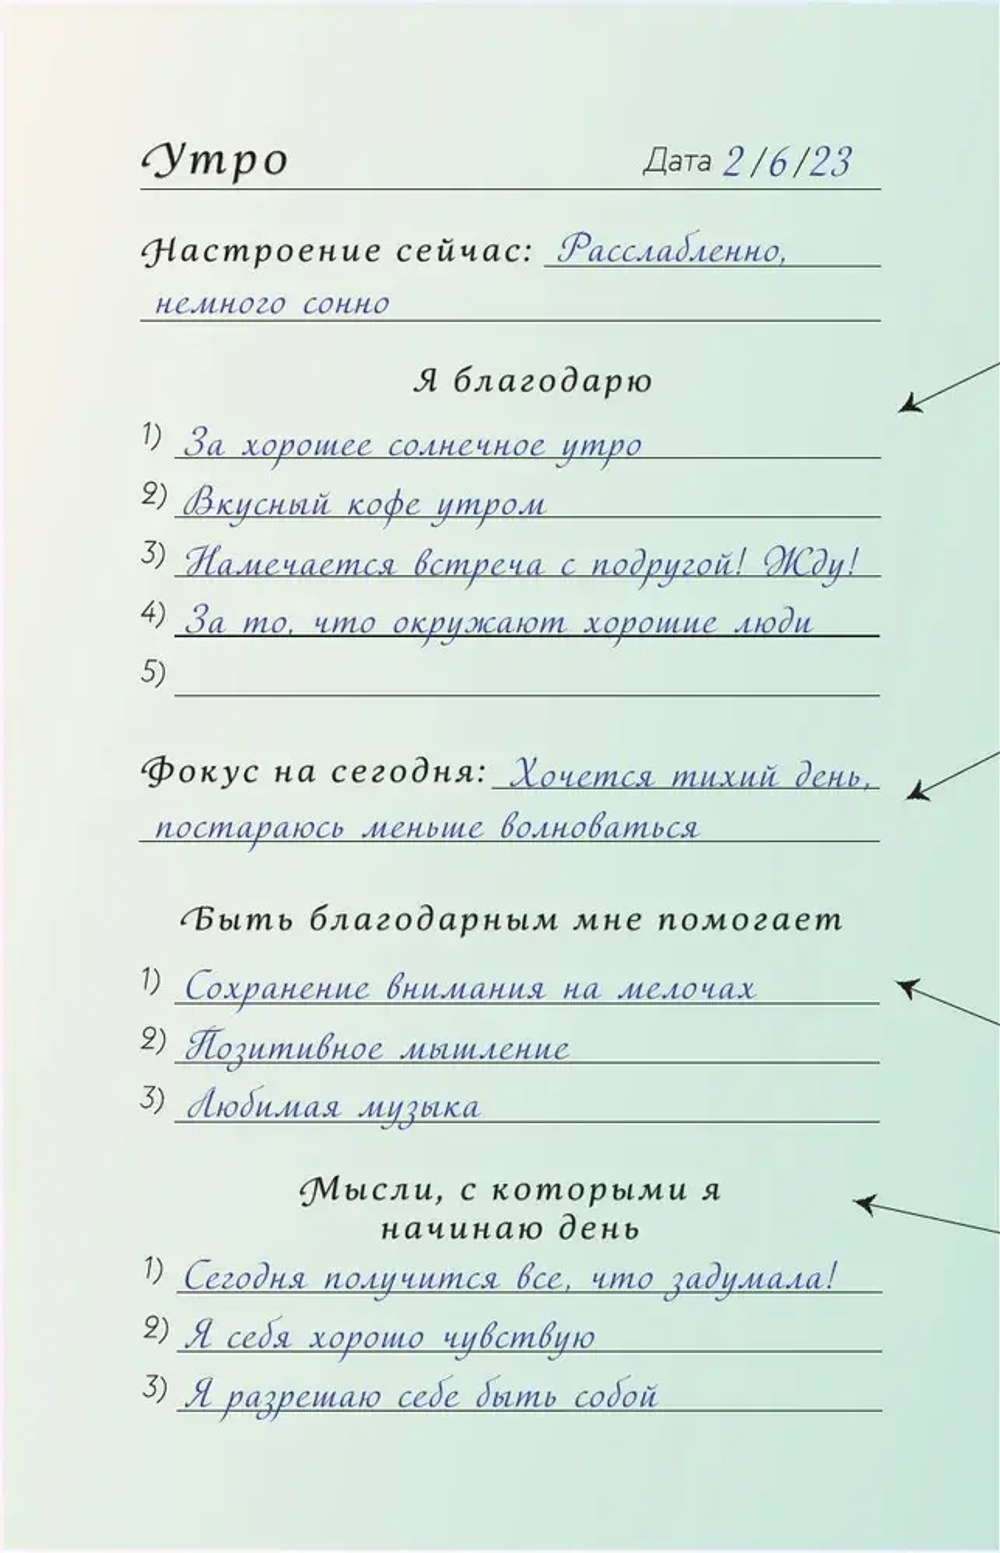 Утро Дата 2/6/23
Настроение сейчас: Расслабленно,
немного сонно
Я благодарю
1) За хорошее солнечное утро
2) Вкусный кофе утром
3) Намечается встреча с подругой! Жду!
4) За то, что окружают хорошие люди
5)
Фокус на сегодня: Хочется тихий день,
постараюсь меньше волноваться
Быть благодарным мне помогает
1) Сохранение внимания на мелочах
2) Позитивное мышление
3) Любимая музыка
Мысли, с которыми я
начинаю день
1) Сегодня получится все, что задумала!
2) Я себя хорошо чувствую
3) Я разрешаю себе быть собой